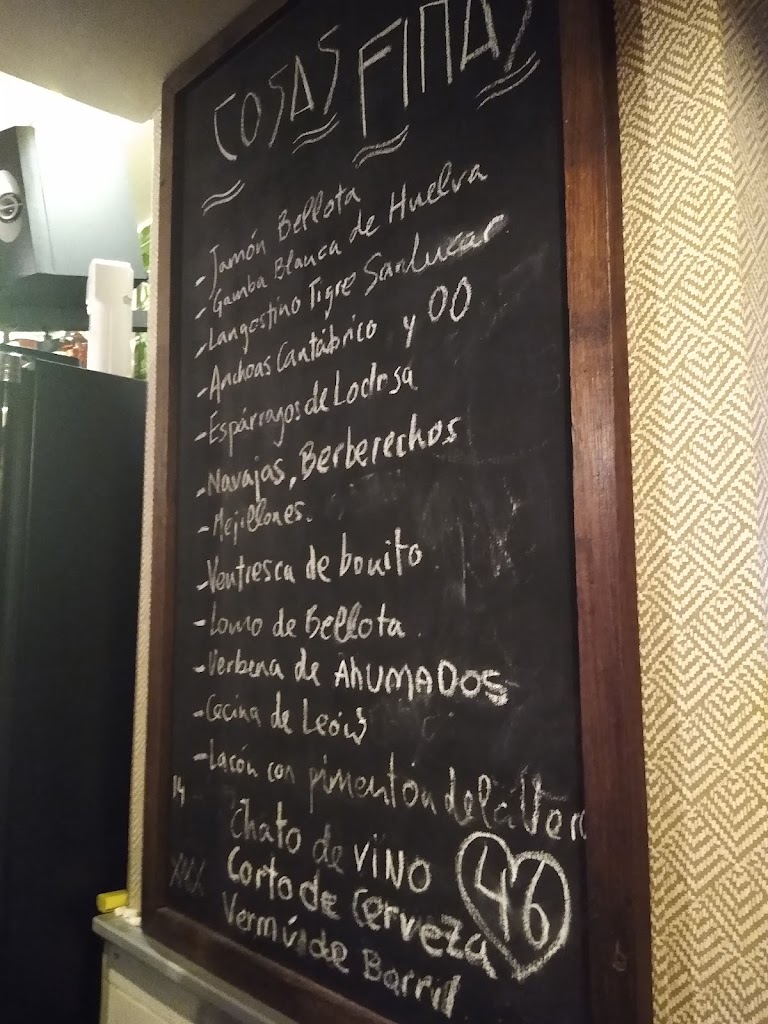 COSAS FINAS
- Jamón Bellota
- Gamba Blanca de Huelva
- Langostino Tigre Sanlucar
- Anchoas Cantábrico y 00
- Espárragos de Lodosa
- Navajas, Berberechos
- Mejillones.
- Ventresca de bonito
- Lomo de Bellota
- Verbena de AhUMADOS
- Cecina de León
- Lacón con pimentón de la Vera
14
Chato de VINO
Corto de Cerveza
46
Vermú de Barril